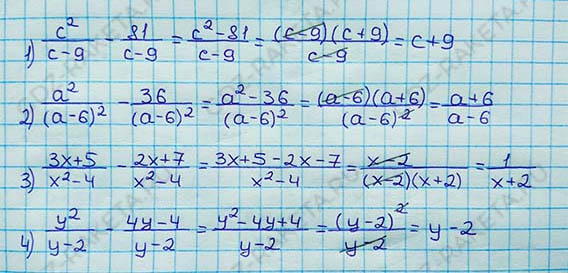 1) c²/(c-9) - 81/(c-9) = (c²-81)/(c-9) = (c-9)(c+9)/(c-9) = c+9
2) a²/(a-6)² - 36/(a-6)² = (a²-36)/(a-6)² = (a-6)(a+6)/(a-6)² = (a+6)/(a-6)
3) (3x+5)/(x²-4) - (2x+7)/(x²-4) = (3x+5-2x-7)/(x²-4) = (x-2)/((x-2)(x+2)) = 1/(x+2)
4) y²/(y-2) - (4y-4)/(y-2) = (y²-4y+4)/(y-2) = (y-2)²/(y-2) = y-2